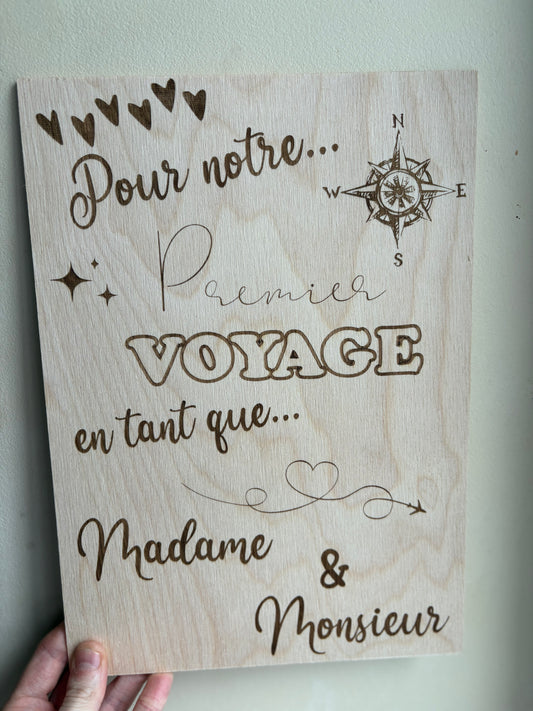 Pour notre...
N
W E
S
Premier
VOYAGE
en tant que...
Madame
&
Monsieur